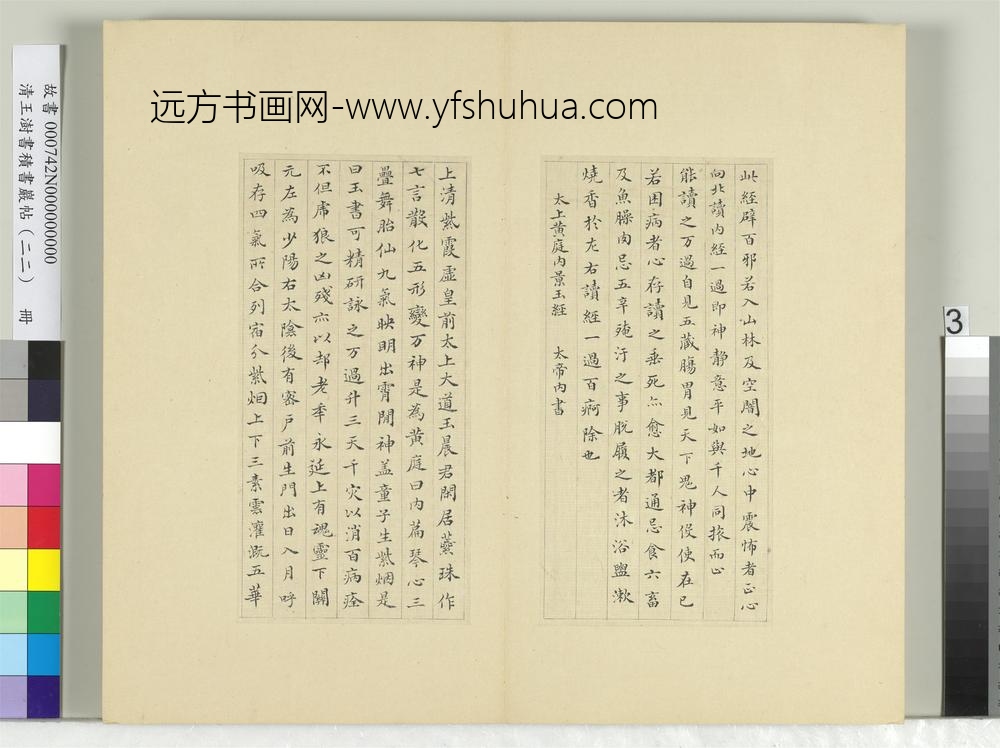 远方书画网-www.yfshuhua.com
故書 000742N000000000
清王澍書積書巖帖(二二) 冊
3
此經辟百邪若入山林及空闇之地心中震怖者正心
向北讀內經一過即神静意平如與千人同旅而止
能讀之万過自見五藏腸胃見天下鬼神役使在已
若困病者心存讀之垂死亦愈大都通忌食六畜
及魚臊肉忌五辛殗汙之事脱履之者沐浴盥漱
燒香於左右讀經一過百痾除也
太上黃庭內景玉經 太帝內書
上清紫霞虛皇前太上大道玉晨君閑居蘂珠作
七言散化五形變万神是為黃庭曰內篇琴心三
疊舞胎仙九氣映明出霄間神盖童子生紫烟是
曰玉書可精研詠之万過升三天千灾以消百病痊
不但虎狼之凶殘亦以却老年永延上有魂靈下關
元左為少陽右太陰後有密戶前生門出日入月呼
吸存四氣所合列宿分紫烟上下三素雲灌溉五華